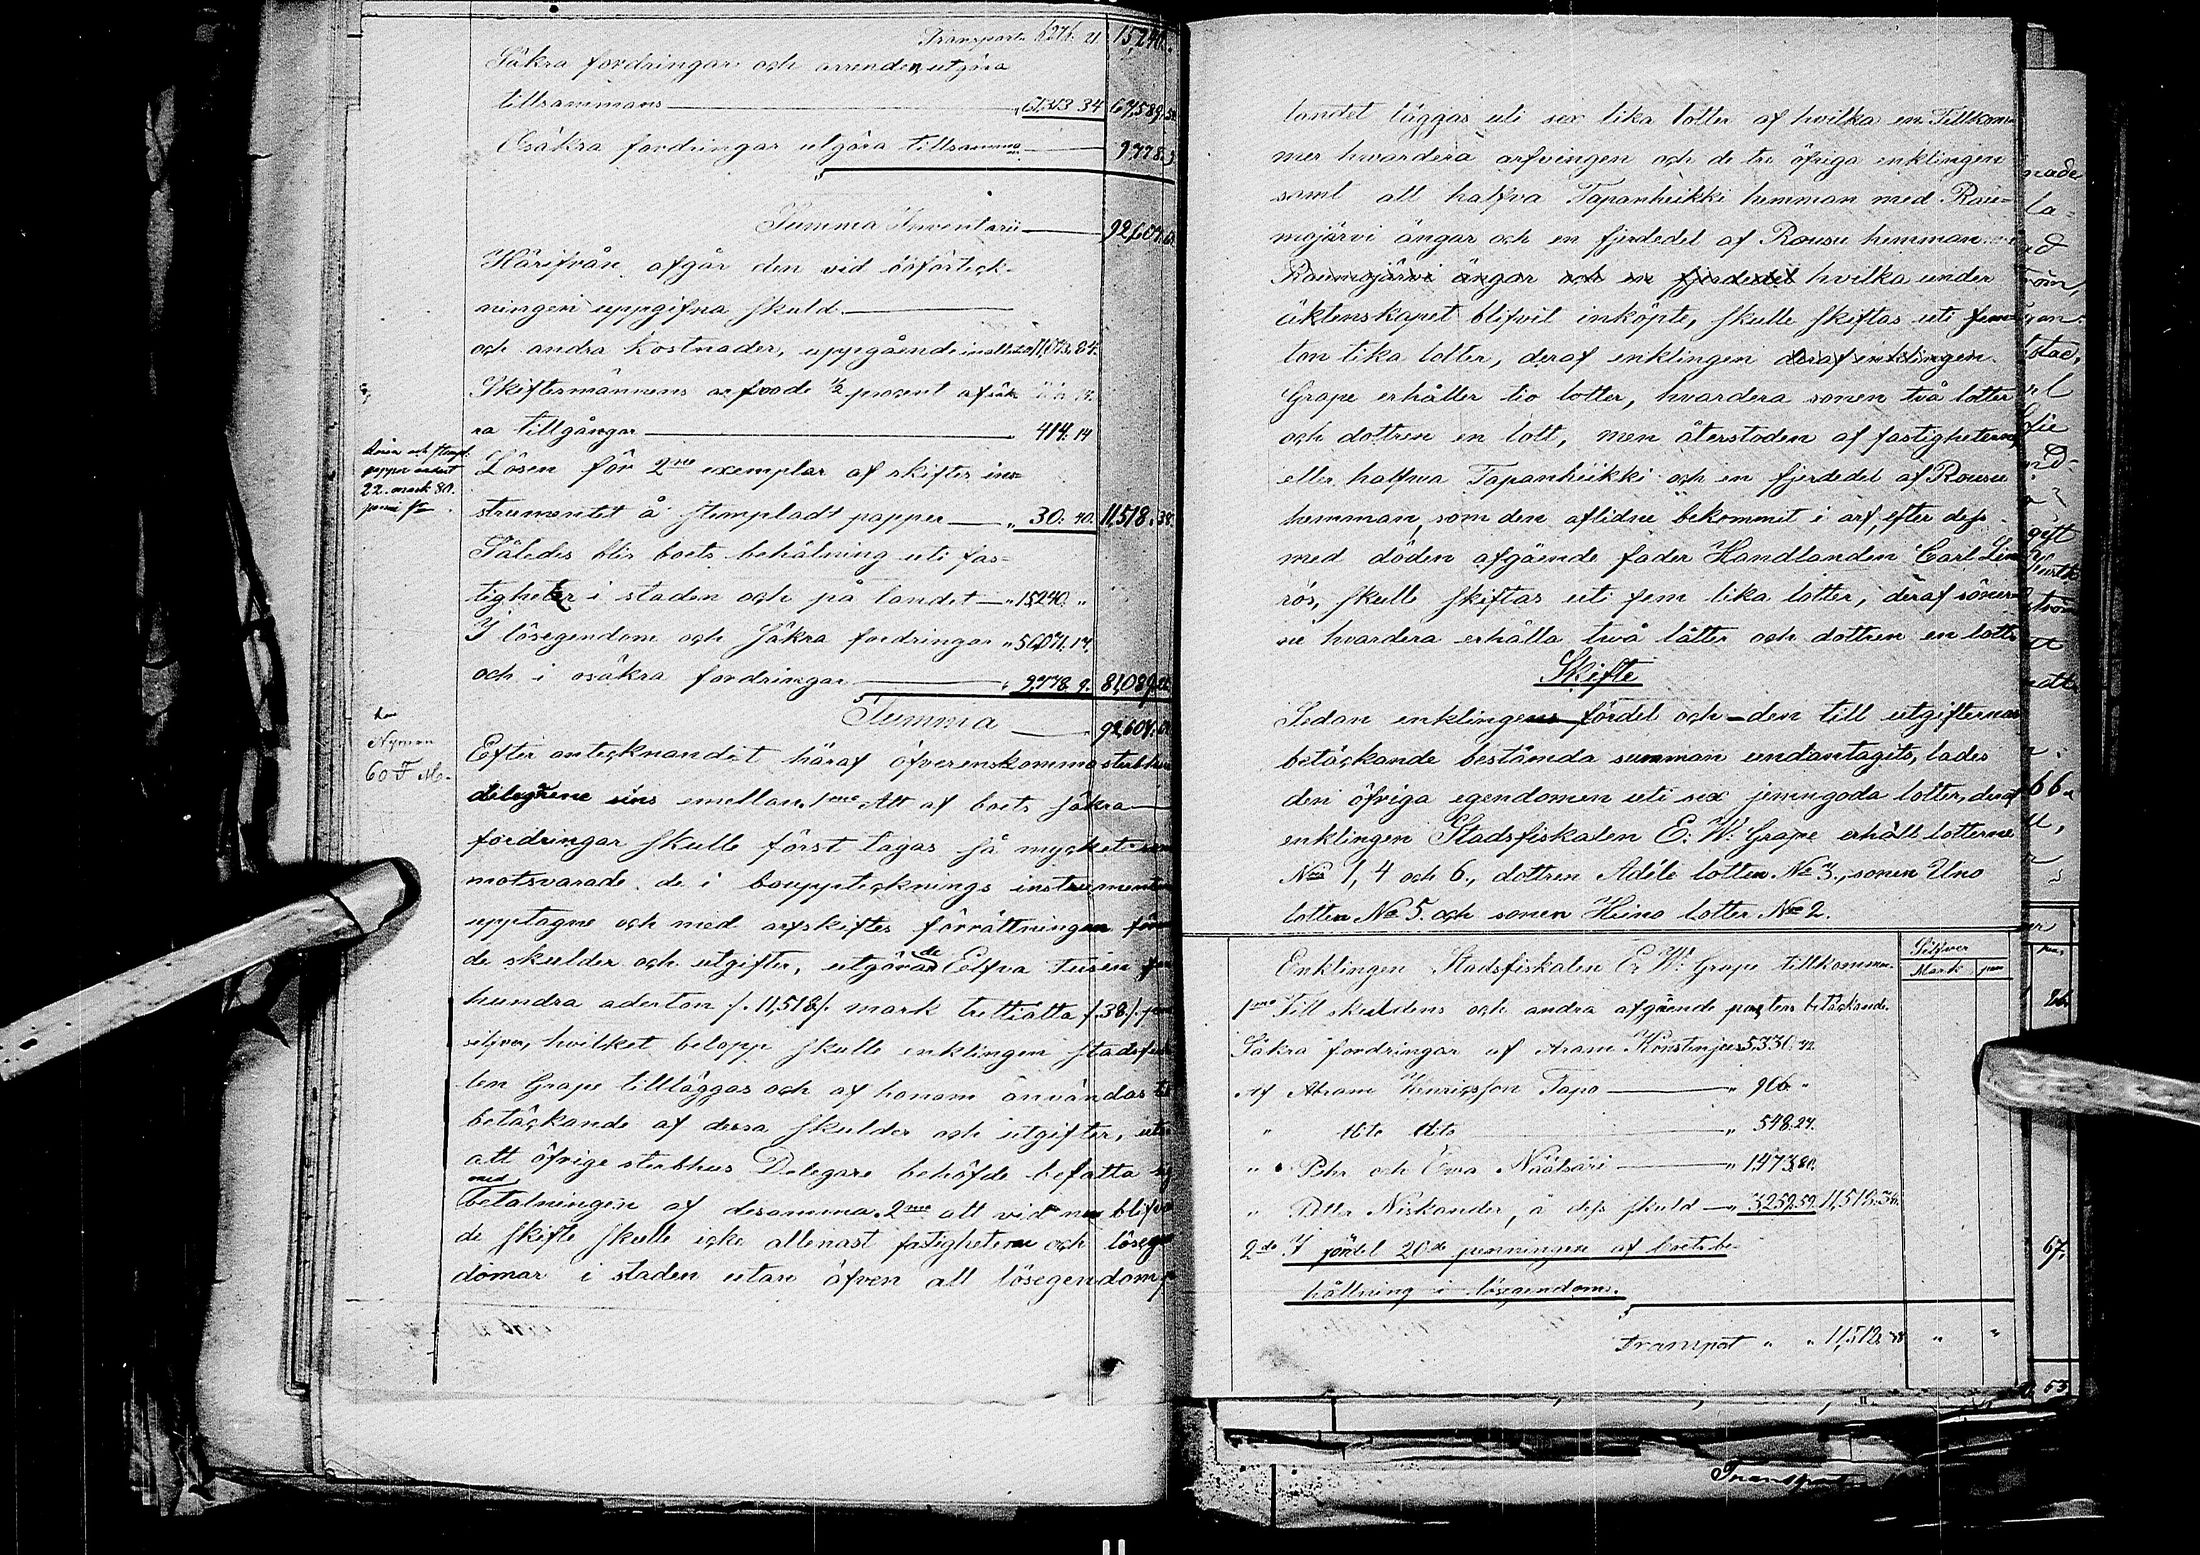 Transport 6276. 21. 15,240.
Säkra fordringar och arrenden utgöra
tillsammans 61,313 34 67,589. 55
Osäkra fordringar utgöra tillsamma 9778. 9
Summa Inventarii 92,607. 64
Härifrån afgår den vid bouppteck-
ningen uppgifna skuld
och andra kostnader, uppgående 11,073. 84.
Skiftesmännens arfvode 1/2 procent af säk
ra tillgångar 414. 14
Lösen för 2ne exemplar af skiftes in
strumentet å stempladt papper 30. 40. 11,518. 38.
Således blir boets behålning uti fas-
tigheter i staden och på landet " 15,240. "
I lösegendom och säkra fordringar " 56,071. 17.
och i osäkra fordringar " 9,778. 9. 81,089. 26
Summa 92,607. 64
Lösen och stempl.
papper endast
22. mark 80.
penni
Nyman
60 F M.
Efter antecknandet häraf öfverenskommo sterbhus
delegarene sins emellan, 1mo Att af boets säkra
fordringar skulle först tagas så mycket som
motsvarade de i bouppteknings instrumentet
upptagne och med arfskiftes förrättningen
de skulder och utgifter, utgörande Elfva Tusen fem
hundra aderton /. 11,518 /. mark trettiåtta /. 38 /. penni
silfver, hvilket belopp skulle enklingen stadsfiska
len Grape tilläggas och af honom användas till
betäckande af dessa skulder och utgifter, utan
att öfrige sterbhus Delegare behöfde befatta sig
med
betalningen af desamma. 2mo att vid nu blifvan
de skifte skulle icke allenast fastigheterne och lösege
domar i staden utan äfven all lösegendom på
landet läggas uti sex lika lotter af hvilka en Tillkom-
mer hvardera arfvingen och de tre öfriga enklingen
samt att halfva Tapanheikki hemman med Rau-
mojärvi ängar och en fjerdedel af Rousu hemman
Raumojärvi ängar och en fjerdedel hvilka under
äktenskapet blifvit inköpte, skulle skiftas uti fem-
ton lika lotter, deraf enklingen deraf enklingen
Grape erhåller tio lotter, hvardera sonen två lotter
och dottren en lott, men återstoden af fastigheterne
eller halfva Tapanheikki och en fjerdedel af Rousu
hemman, som den aflidne bekommit i arf, efter dess
med döden afgående fader Handlanden Carl Len
rös, skulle skiftas uti fem lika lotter, deraf söner
ne hvardera erhålla två lotter och dottren en lott.
Skifte
Sedan enklingens fördel och den till utgifternas
betäckande bestämda summan undantagits, lades
den öfriga egendomen uti sex jemngoda lotter, deraf
enklingen Stadsfiskalen E. W. Grape erhöll lotterne
Nris 1, 4 och 6., dottren Adéle lotten No 3., sonen Uno
lotten No 5. och sonen Heino lotter No 2.
Silfver
Mark pni
Enklingen Stadsfiskalen E. W. Grape tillkommer
1mo Till skuldens och andra afgående posters betäckande
Säkra fordringar af Aram 5330. 72
Af Abram Henricsson Tapo " 906. "
" dito dito " 548. 27.
" " Pehr och Ewa Näätsäri " 1473. 80.
" Petter Niskander, å dess skuld " 3259. 59. 11,518. 38.
2do I fördel 20de penningen af boets be-
hållning i lösegendom.
Transport " " 11,518. 38 " "
Transport